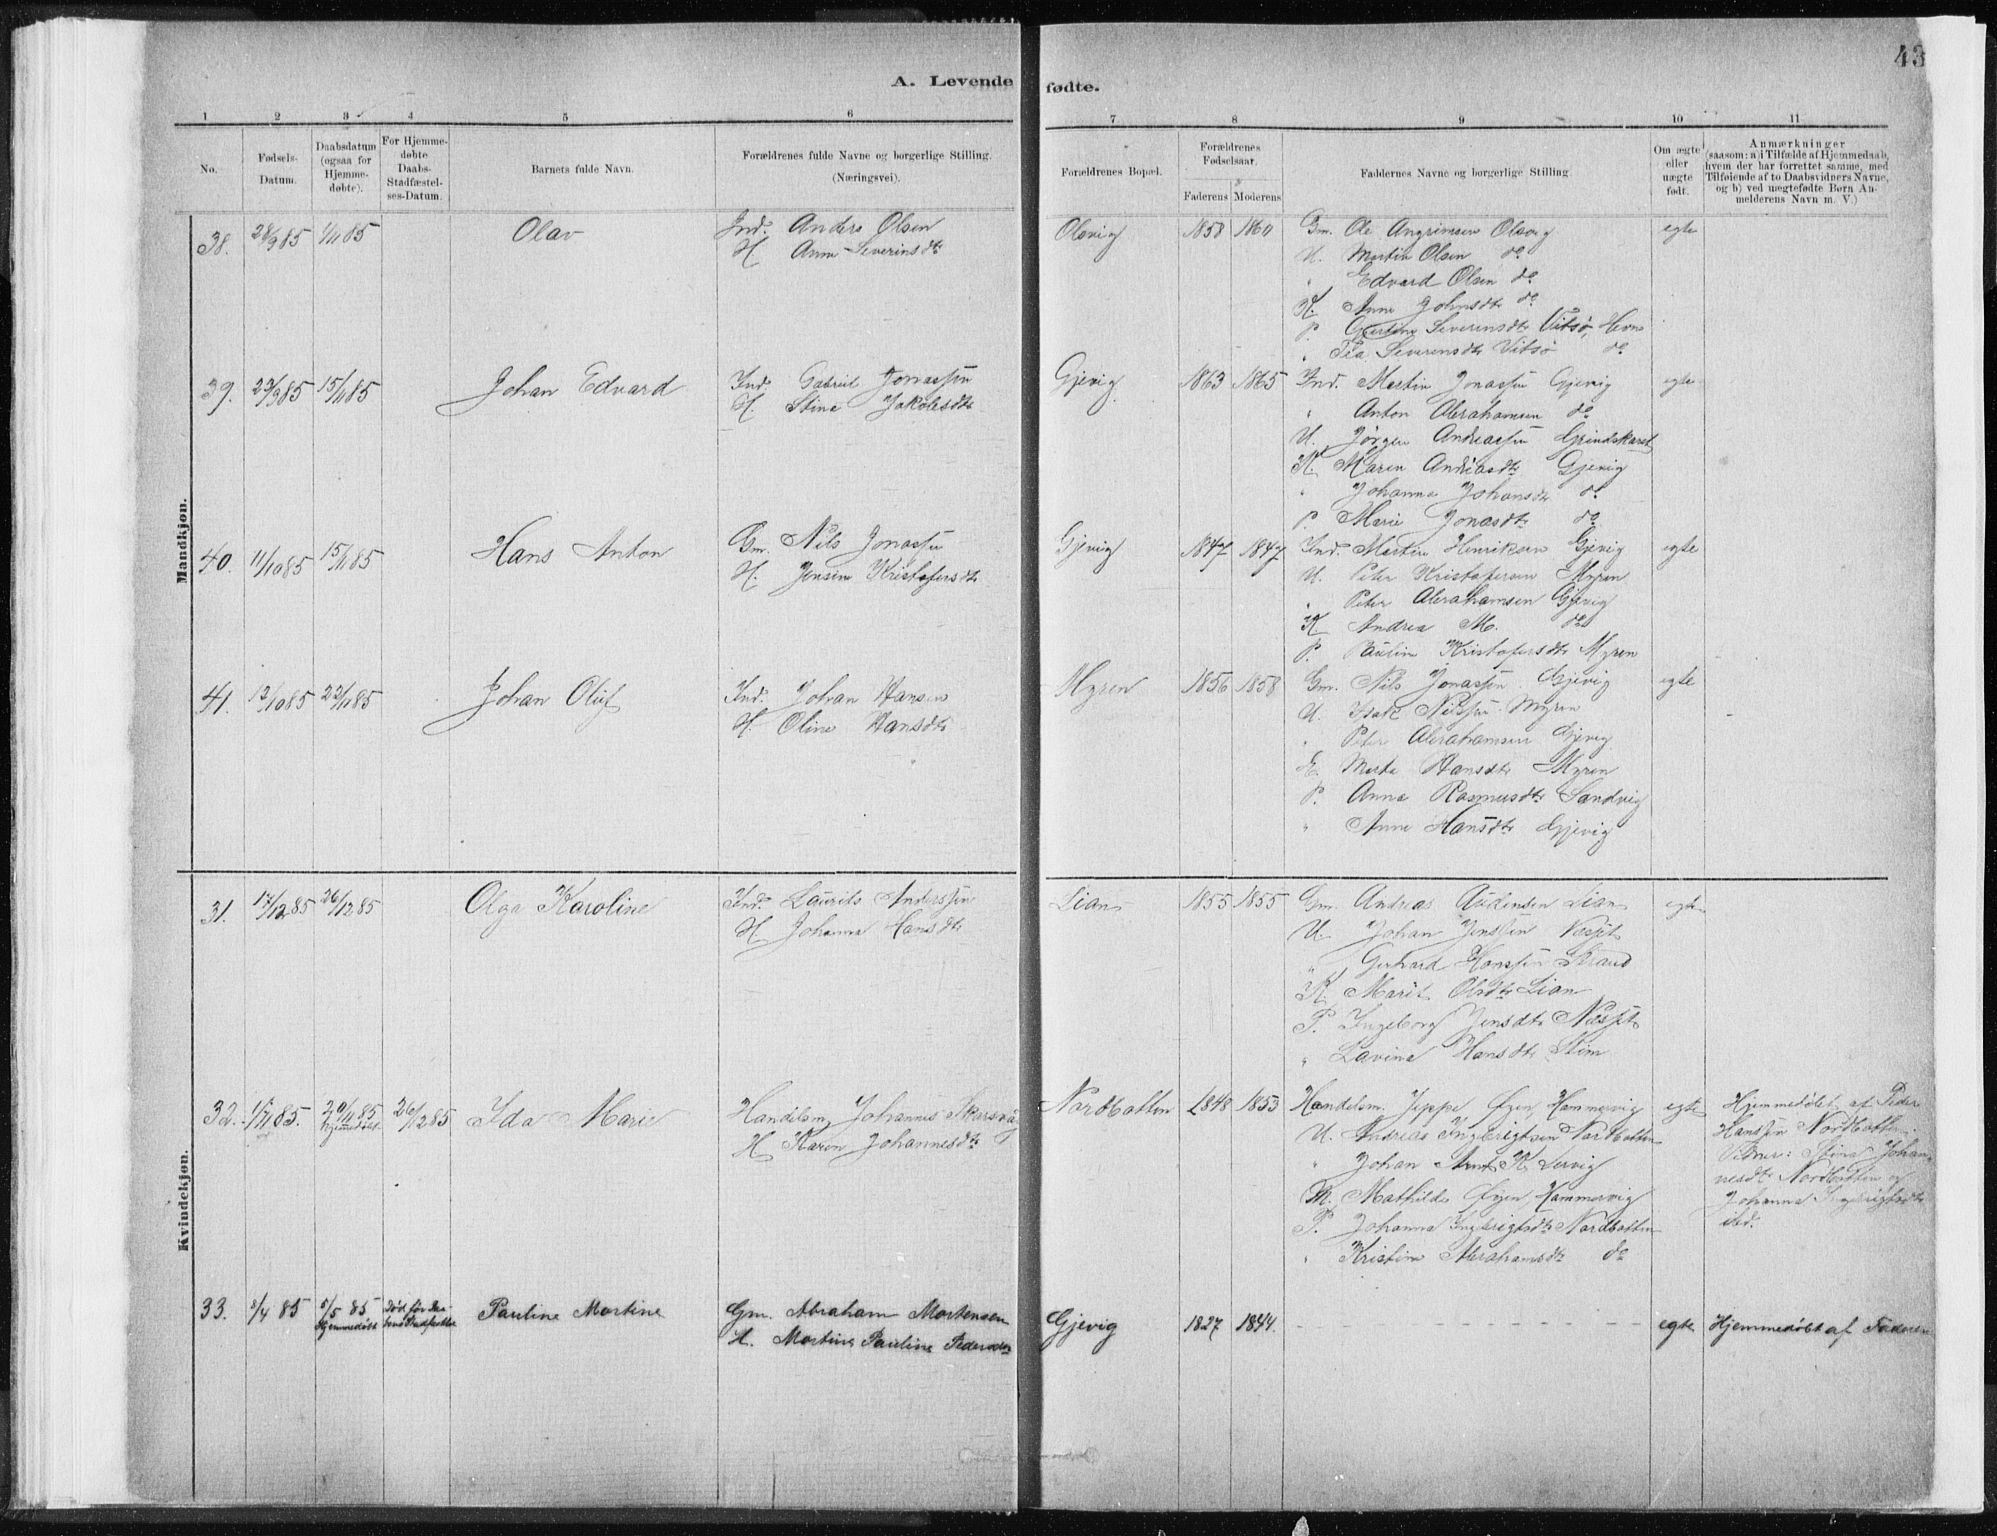 43
A. Levende fødte.
1 2 3 4 5 6 7 8 9 10 11
No.
Fødsels-Datum.
Daabsdatum (ogsaa for Hjemme-døbte).
For Hjemme-døbte Daabs-Stadfæstel-ses-Datum.
Barnets fulde Navn.
Forældrenes fulde Navne og borgerlige Stilling.
(Næringsvei).
Forældrenes Bopæl.
Forældrenes Fødselsaar.
Faderens Moderens
Faddernes Navne og borgerlige Stilling.
Om ægte eller uægte født.
Anmærkninger
(saasom: a) i Tilfælde af Hjemmedaab,
hvem der har forrettet samme, med
Tilføiende af to Daabsvidners Navne,
og b) ved uægtefødte Børn An-
melderens Navn m. V.)
Mandkjøn.
38. 28/9 85 1/11 85 Olav Ind. Anders Olsen
H. Anne Severinsdtr
Olsvig 1858 1860 Gm. Ole Angrimsen Olsvig egte
U. Martin Olsen do
" Edvard Olsen do
K. Anne Johnsdtr do
P. Severinsdtr Vitsø, Hevn
" Pia Severensdtr Vitsø do
39. 23/9 85 15/11 85 Johan Edvard Ind. Gabriel Jonassen
H. Stine Jakobsdtr
Gjevig 1863 1865 Ind. Martin Jonassen Gjevig egte
" Anton Abrahamsen do
U. Jørgen Andreassen Grindskaret
K. Maren Andreasdtr Gjevig
" Johanna Johansdtr do
P. Marie Jonasdtr do
40. 11/10 85 15/11 85 Hans Anton Gm. Nils Jonassen
H. Jensine Kristofersdtr
Gjevig 1847 1847 Ind. Martin Henriksen Gjevig egte
U. Peter Kristofersen Myren
" Peter Abrahamsen Gjevig
K. Andrea M. do
P. Pauline Kristofersdtr Myren
41. 12/10 85 22/11 85 Johan Oluf Ind. Johan Hansen
H. Oline Hansdtr
Myren 1856 1858 Gm. Nils Jonassen Gjevig egte
U. Isak Nilssen Myren
" Peter Abrahamsen Gjevig
E. Marta Hansdtr Myren
P. Anna Rasmusdtr Sandvig
" Anne Hansdtr Gjevig
Kvindekjøn.
31. 17/12 85 26/12 85 Olga Karoline Ind. Laurits Anderssen
H. Johanna Hansdtr
Lian 1855 1855 Gm. Andreas Audensen Lian egte
U. Johan Jenssen Næsset
" Gerhard Hanssen Strand
K. Marit Olsdtr Lian
P. Ingeborg Jensdtr Næsset
" Lavine Hansdtr Stim
32. 1/11 85. 29/11 85 hjemmedøbt 26/12 85 Ida Marie Handelsm. Johannes Akersvig
H. Karen Johannesdtr
Nordbotten 1848 1853 Handelsm. Jeppe Øyen Hammervig egte
U. Andreas Ingbrigtsen Nordbotten
" Johan Arnt K. Servig
M. Mathilde Øyen Hammervig
P. Johanna Ingbrigtsdtr Nordbotten
" Kristine Abrahamsdtr do
Hjemmedøbt af Peder
Hanssen Nordbotten.
Vidner: Stina Johan-
nesdtr Nordbotten og
Johanna Ingbrigtsdtr
ibid.
33. 8/4 85 5/5 85 Hjemmedøbt Død før Daa-bens Stadfæstelse Pauline Martine Gm. Abraham Mortensen
H. Martine Pauline Pedersdtr
Gjevig 1827 1844. egte Hjemmedøbt af Faderen